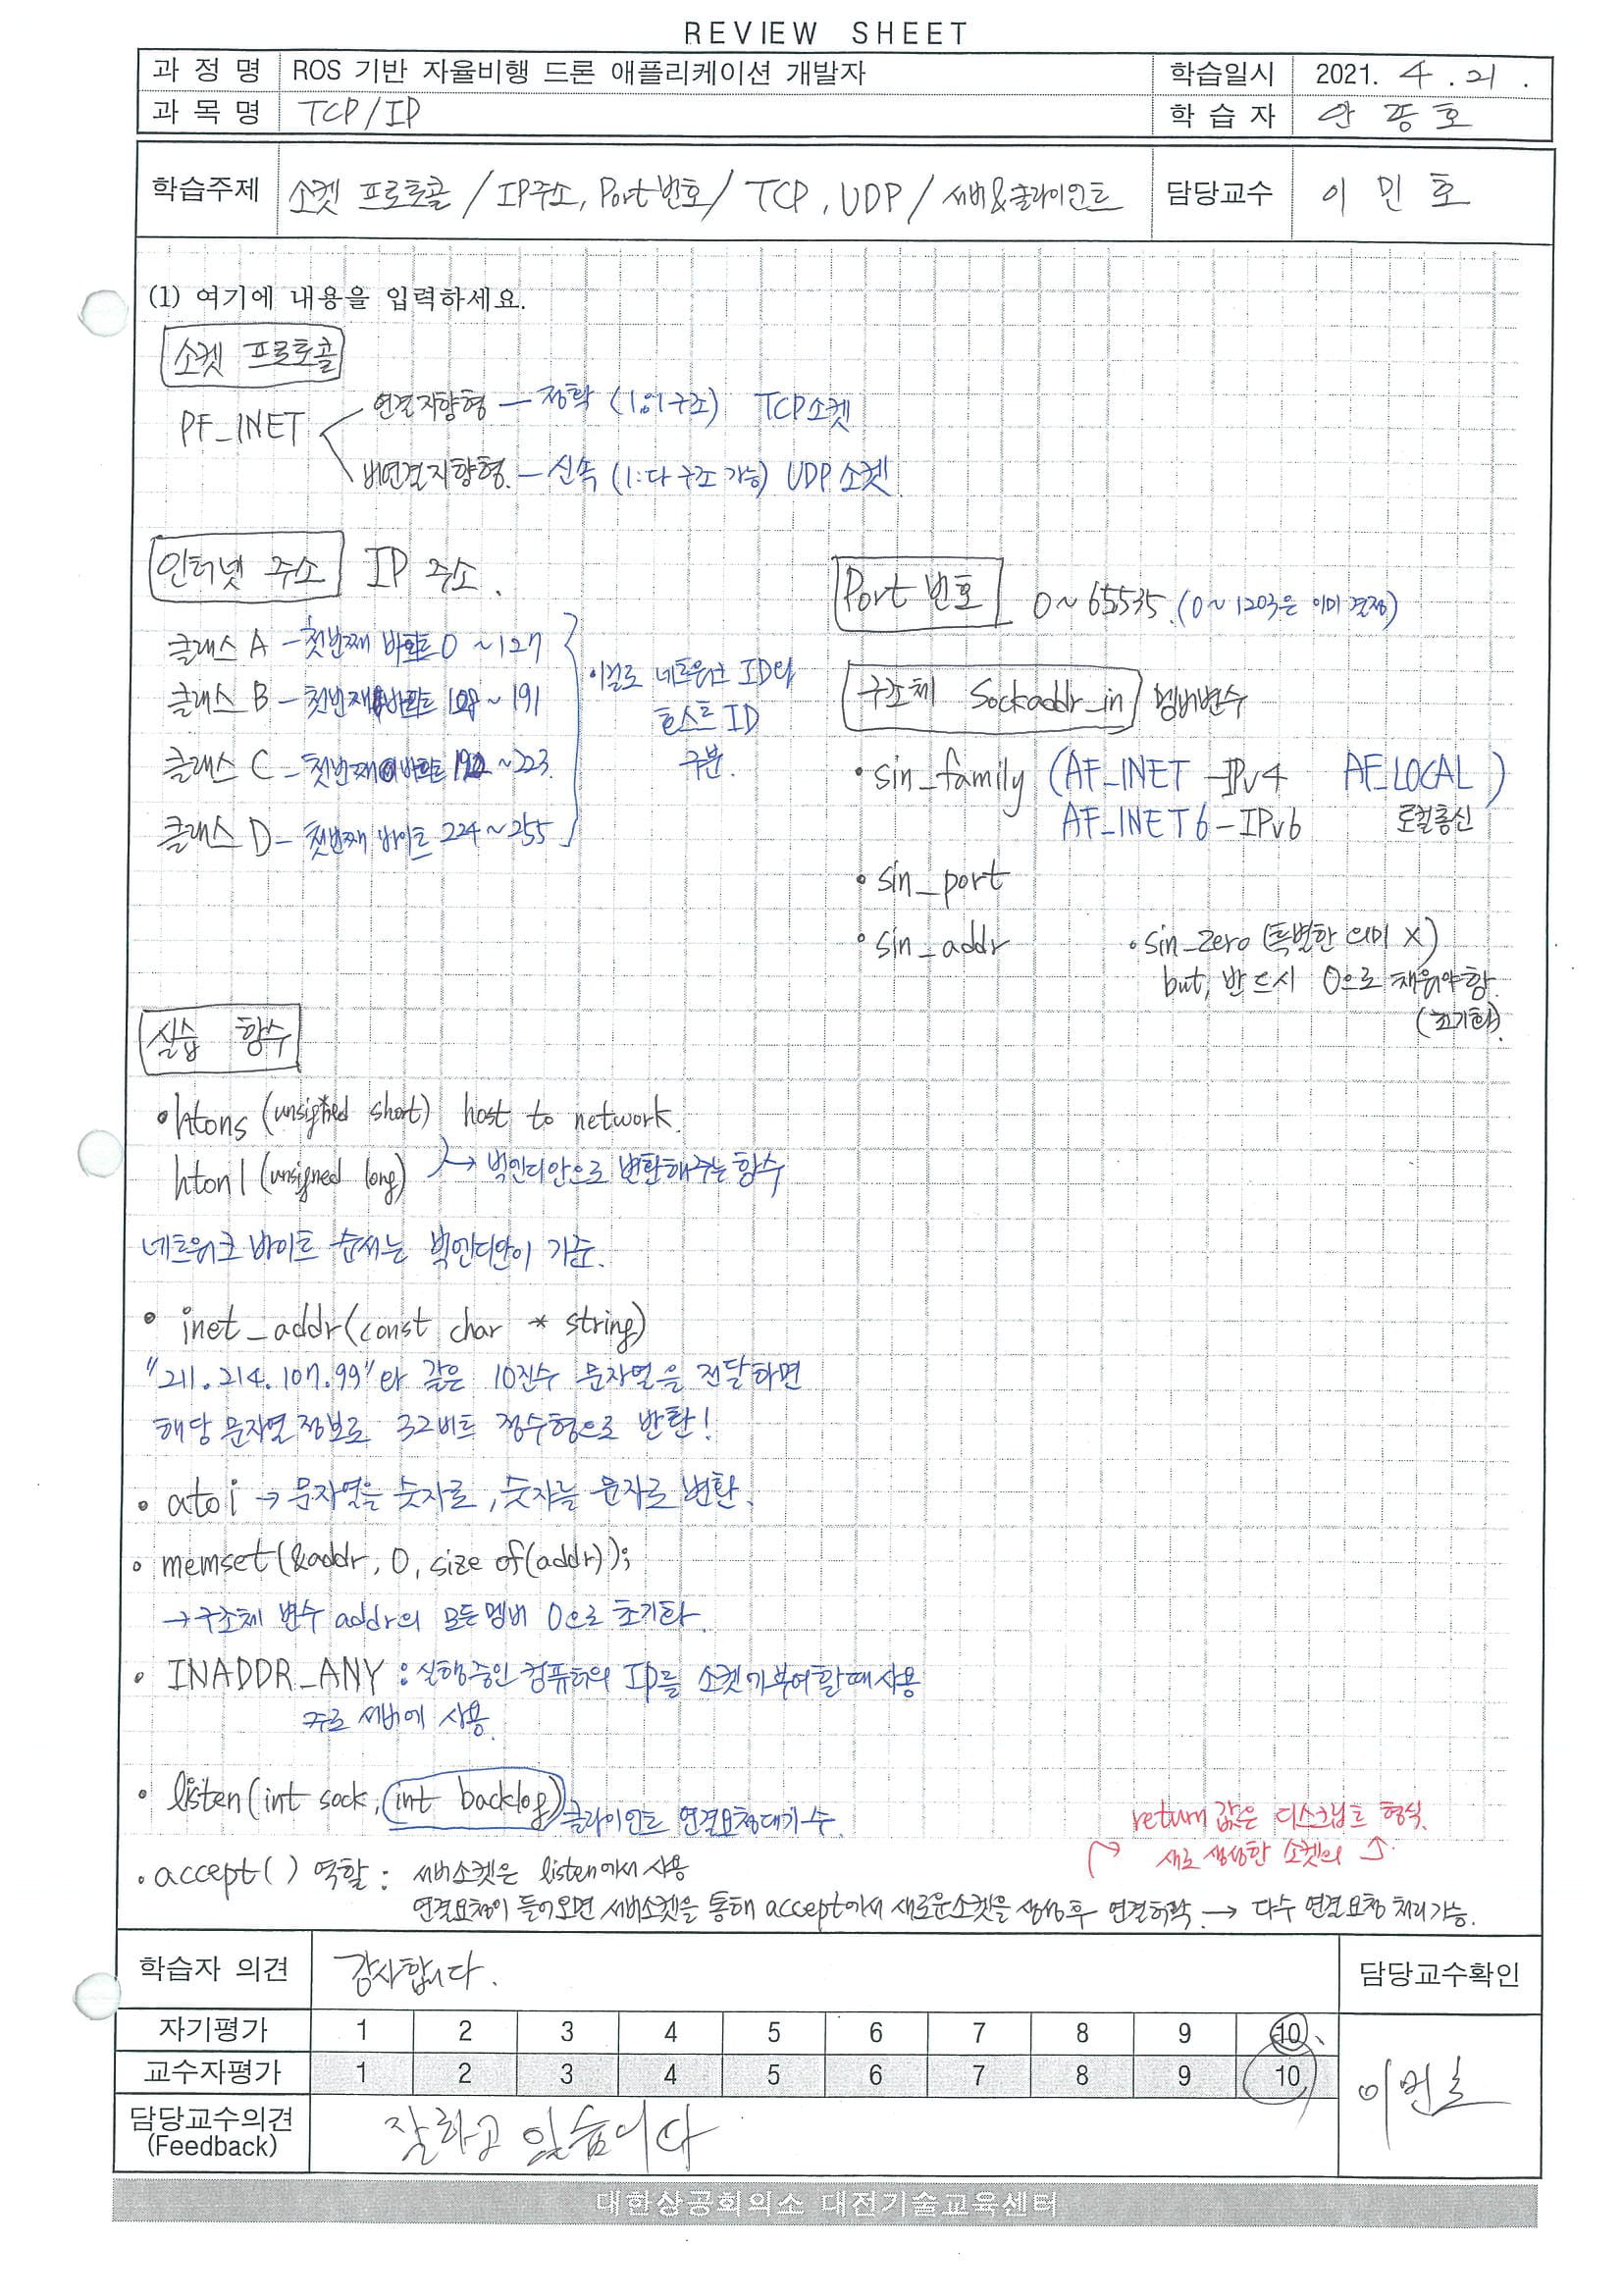 REVIEW SHEET
과 정 명 ROS 기반 자율비행 드론 애플리케이션 개발자 학습일시 2021. 4 . 21 .
과 목 명 TCP/IP 학 습 자 안 종 호
학습주제 소켓 프로토콜 / IP주소, Port 번호 / TCP , UDP / 서버&클라이언트 담당교수 이 민 호
(1) 여기에 내용을 입력하세요.
소켓 프로토콜
연결지향형 — 정확 (1:1구조) TCP소켓
PF_INET
비연결지향형. — 신속 (1:다 구조 가능) UDP 소켓
인터넷 주소 IP 주소.
Port 번호 0~65535. (0~1203은 이미 결정)
클래스 A - 첫번째 바이트 0 ~127
클래스 B - 첫번째 바이트 128 ~ 191
클래스 C - 첫번째 바이트 192 ~223.
클래스 D - 첫번째 바이트 224~255
이걸로 네트워크 ID와
호스트 ID
구분.
구조체 Sockaddr_in 멤버변수
• sin_family (AF_INET - IPv4 AF_LOCAL )
AF_INET6 - IPv6 로컬통신
• sin_port
• sin_addr • sin_zero (특별한 의미 X)
but, 반드시 0으로 채워야함.
(초기화).
실습 함수
• htons (unsigned short) host to network.
htonl (unsigned long) → 빅엔디안으로 변환해주는 함수
네트워크 바이트 순서는 빅엔디안이 기준.
• inet_addr(const char * string)
"211.214.107.99"와 같은 10진수 문자열을 전달하면
해당 문자열 정보로 32비트 정수형으로 반환!
• atoi → 문자열을 숫자로, 숫자를 문자로 변환.
• memset(&addr, 0, size of(addr));
→ 구조체 변수 addr의 모든 멤버 0으로 초기화.
• INADDR_ANY : 실행중인 컴퓨터의 IP를 소켓에 부여할때 사용
주로 서버에 사용.
• listen(int sock, int backlog) 클라이언트 연결요청대기수.
return 값은 디스크립트 형식.
새로 생성한 소켓의
• accept( ) 역할 : 서버소켓은 listen에서 사용
연결요청이 들어오면 서버소켓을 통해 accept에서 새로운소켓을 생성 후 연결허락. → 다수 연결요청 처리가능.
학습자 의견 감사합니다. 담당교수확인
자기평가 1 2 3 4 5 6 7 8 9 10
교수자평가 1 2 3 4 5 6 7 8 9 10
이민호
담당교수의견
(Feedback) 잘하고 있습니다
대한상공회의소 대전기술교육센터